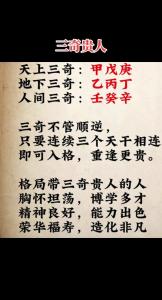 三奇贵人
天上三奇：甲戊庚
地下三奇：乙丙丁
人间三奇：壬癸辛
三奇不管顺逆，
只要连续三个天干相连
即可入格，重逢更贵。
格局带三奇贵人的人
胸怀坦荡，博学多才
精神良好，能力出色
荣华福寿，造化非凡